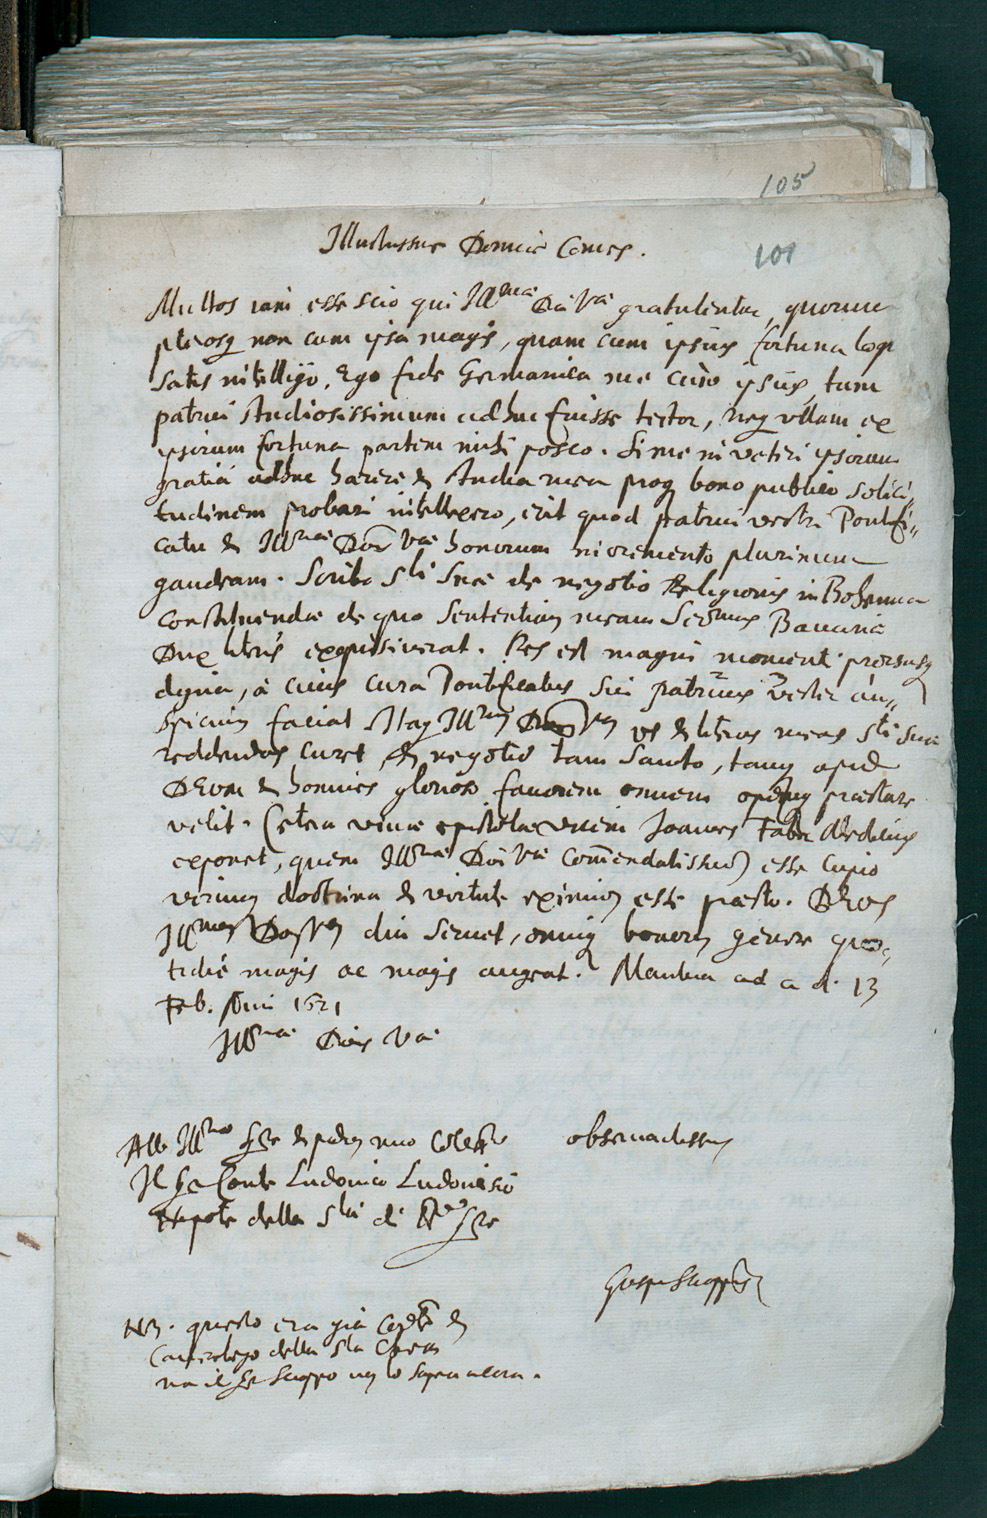 105
101
Illustrissime Domine Comes.
Multos iam esse scio qui Ill^mae Dni V^ae gratulentur, quorum
pterosq non cum ipsa magis, quam cum ipsius fortuna loqi
satis intelligo. Ego fide Germanica me cum ipsius, tum
patrui studiosissimum adhuc fuisse testor, neq ullam ex
ipsorum fortuna partem mihi posco. Si me in veteri ipsorum
gratia adhuc haerere & studia mea proq bono publico solici„
tudinem probari intellexero, erit quod patrui vestri Pontifi„
catu & Ill^mae Dnis V^ae honorum incremento plurimum
gaudeam. Scribo S^ti Suae de negotio Religionis in Bohemia
constituendae de quo sententiam meam Ser^mus Bavariae
Dux literis exquisiverat. Res est magni momenti prorsusq
digna, à cuius cura Pontificatus sui patruus vester au„
spicium faciat Itaq Ill^mam V^am ut & literas meas S^ti Suae
reddendas curet, & negotio tam Santo, tamq apud
DEum & homines glorioso favorem omnem opemq praestare
velit. Cetera vivae epistolae vicem Joannes Faber Medicus
exponet, quem Ill^mae Dni V^ae Comendatissimum esse cupio
virum doctrina & virtute eximium esse praesto. DEus
Ill^mam V^am diu servet, omniq bonorum genere quo„
tidie magis ac magis augeat. Mantua ad a d. 13
Feb. Anni 1621
Ill^mae Dnis V^ae
observadissimus
All Ill^mo Sre & pdron mio Col^mo
Il Sr Conte Ludovico Ludovisio
Nepote della S^tà di N^ro Sre
Gaspr Scioppius
NB. questo era già Card^le &
Camerlego della S^ta Chiesa
ma il Sr Scioppo non lo sapeva alora.